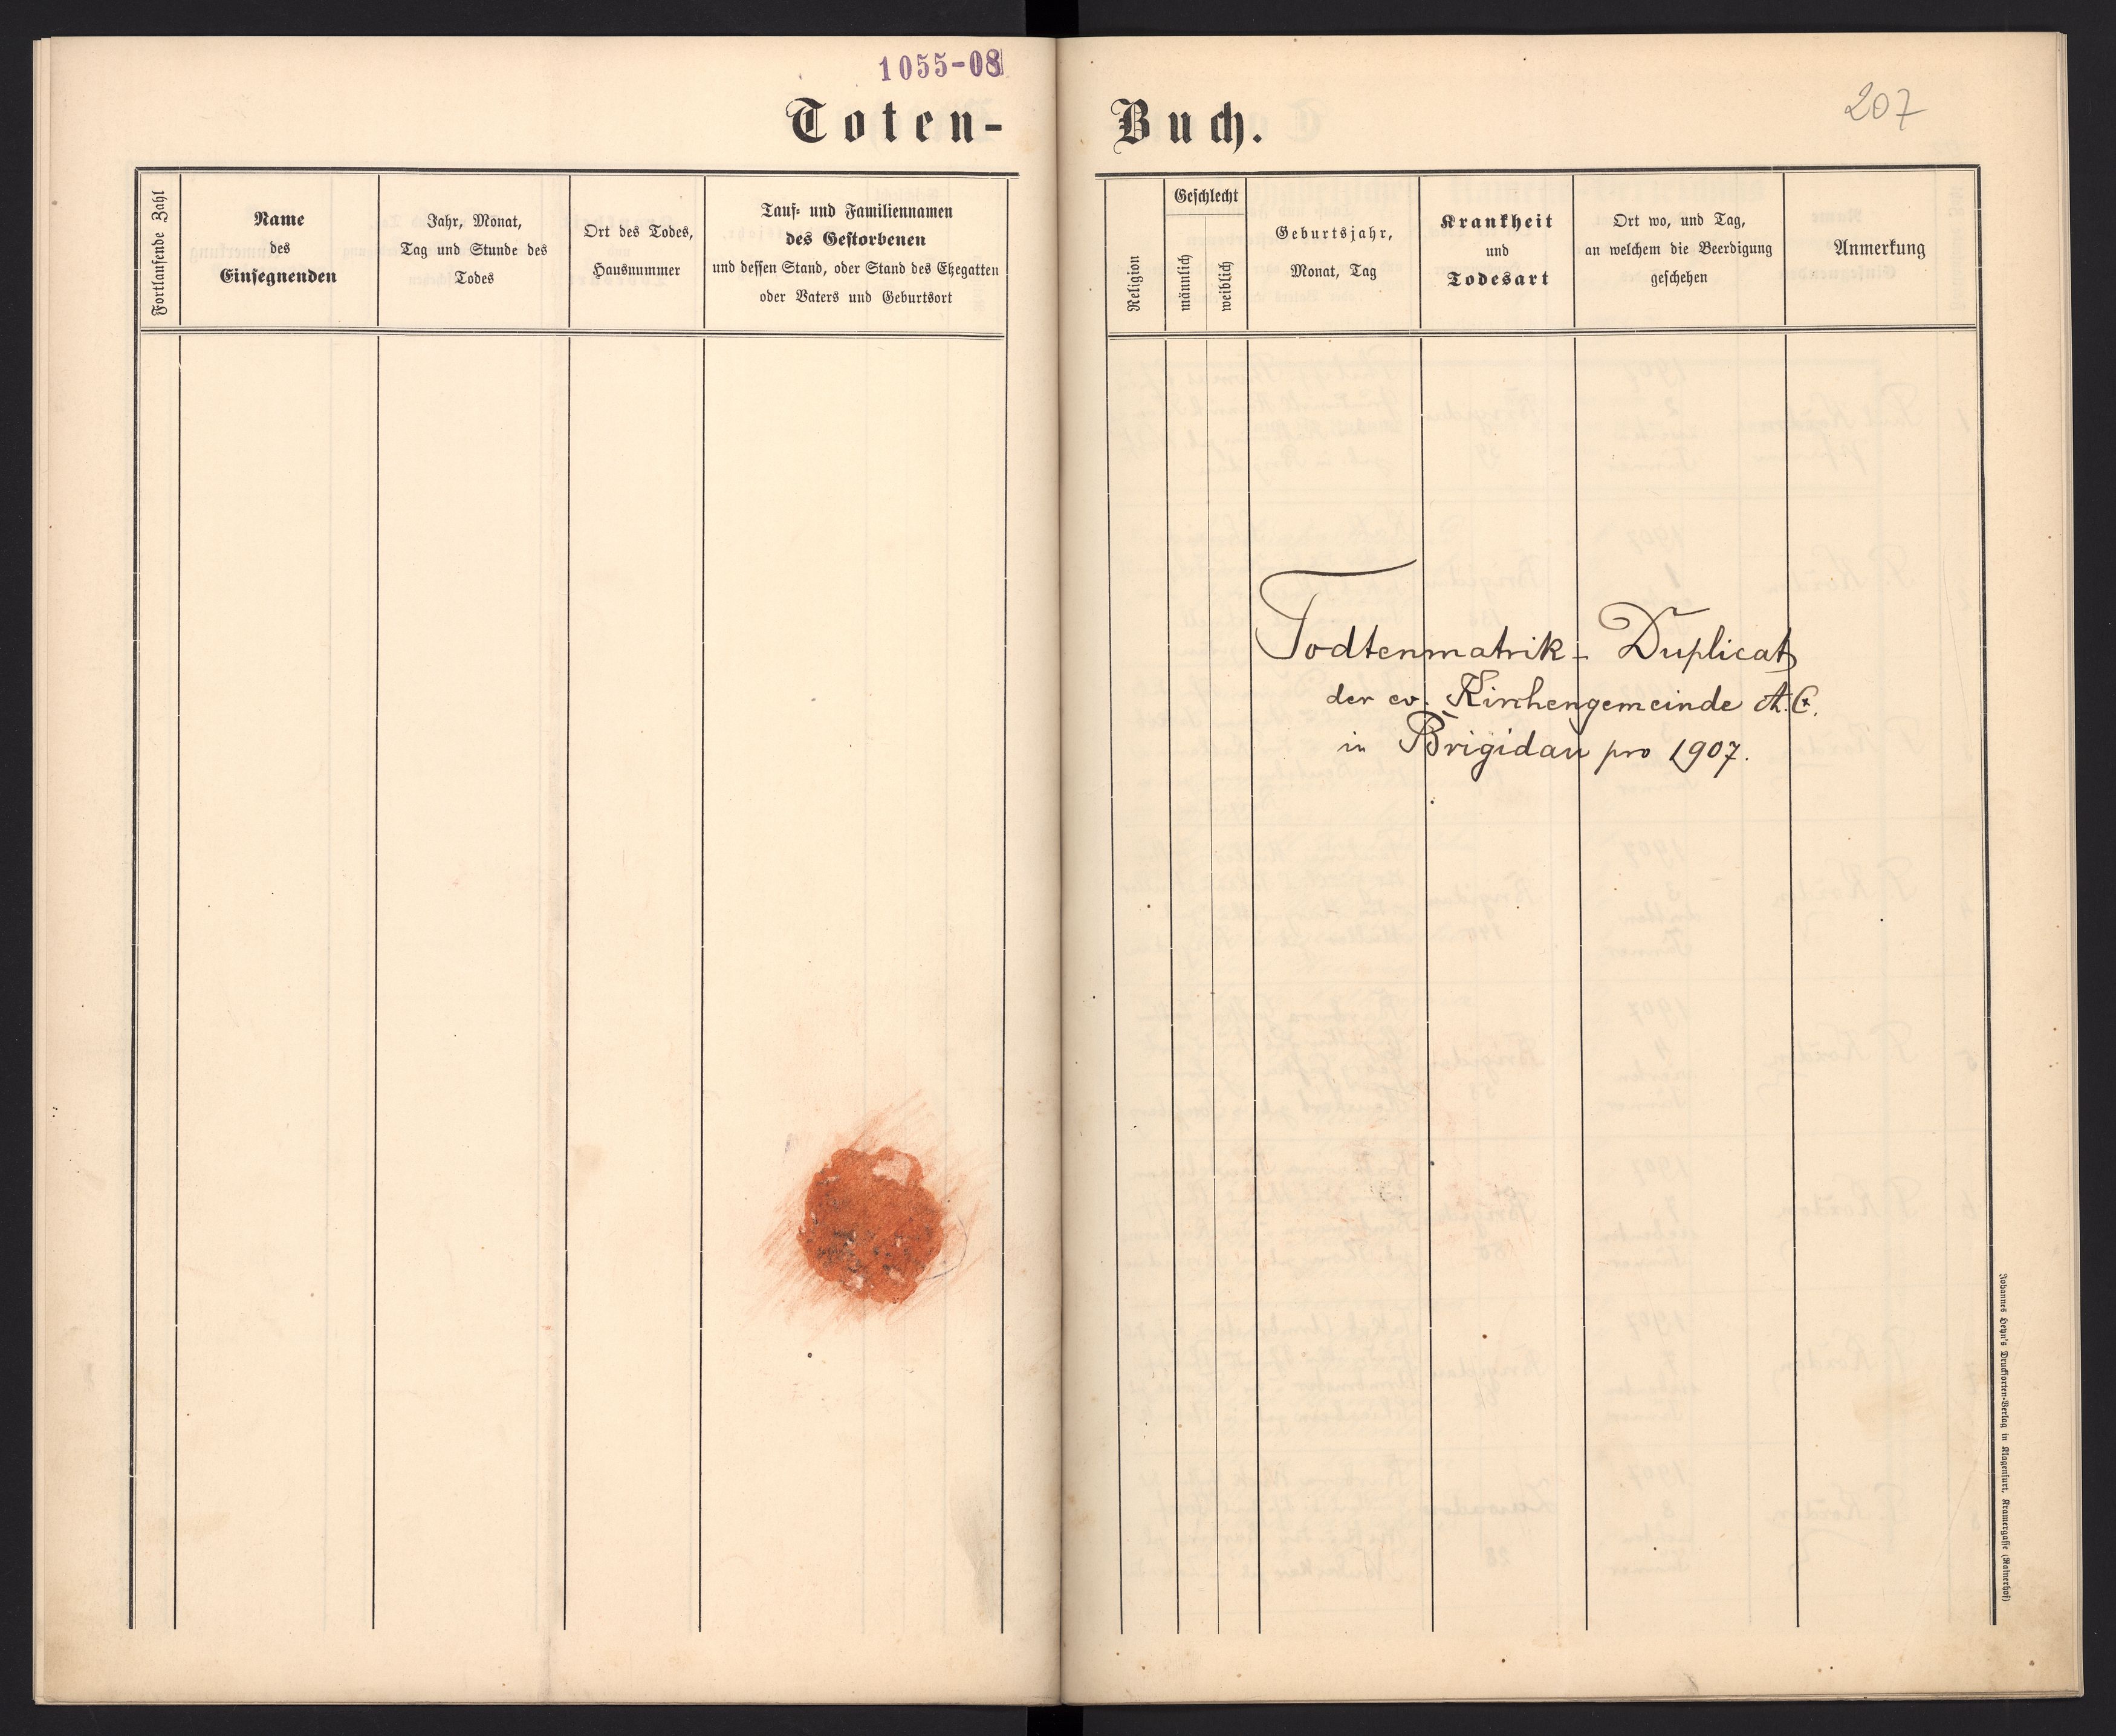 1055-08
Toten-
Buch.
207
Fortlaufende Zahl
Name
des
Einsegnenden
Jahr, Monat,
Tag und Stunde des
Todes
Ort des Todes,
Hausnummer
Tauf- und Familiennamen
des Gestorbenen
und dessen Stand, oder Stand des Ehegatten
oder Vaters und Geburtsort
Religion
Geschlecht
männlich
weiblich
Geburtsjahr,
Monat, Tag
Krankheit
und
Todesart
Ort wo, und Tag,
an welchem die Beerdigung
geschehen
Anmerkung
Todtenmatrik- Duplicat
der ev. Kirchengemeinde A. C.
in Brigidau pro 1907.
Johannes Heyn's Drucksorten-Verlag in Klagenfurt, Kramergasse (Rainerhof)